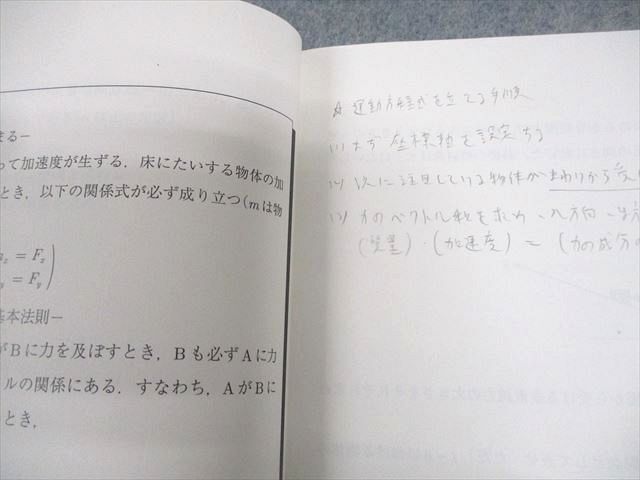 まる－
って加速度が生ずる．床にたいする物体の加
とき，以下の関係式が必ず成り立つ(mは物
= Fx
y = Fy
基本法則－
がBに力を及ぼすとき，Bも必ずAに力
ルの関係にある．すなわち，AがBに
とき，
☆ 運動方程式を立てる手順
(1) まず座標軸を設定する
(2) 次に注目している物体がまわりから受
(3) 力のベクトル和を求め、x方向、y方
(質量)・(加速度) = (力の成分の